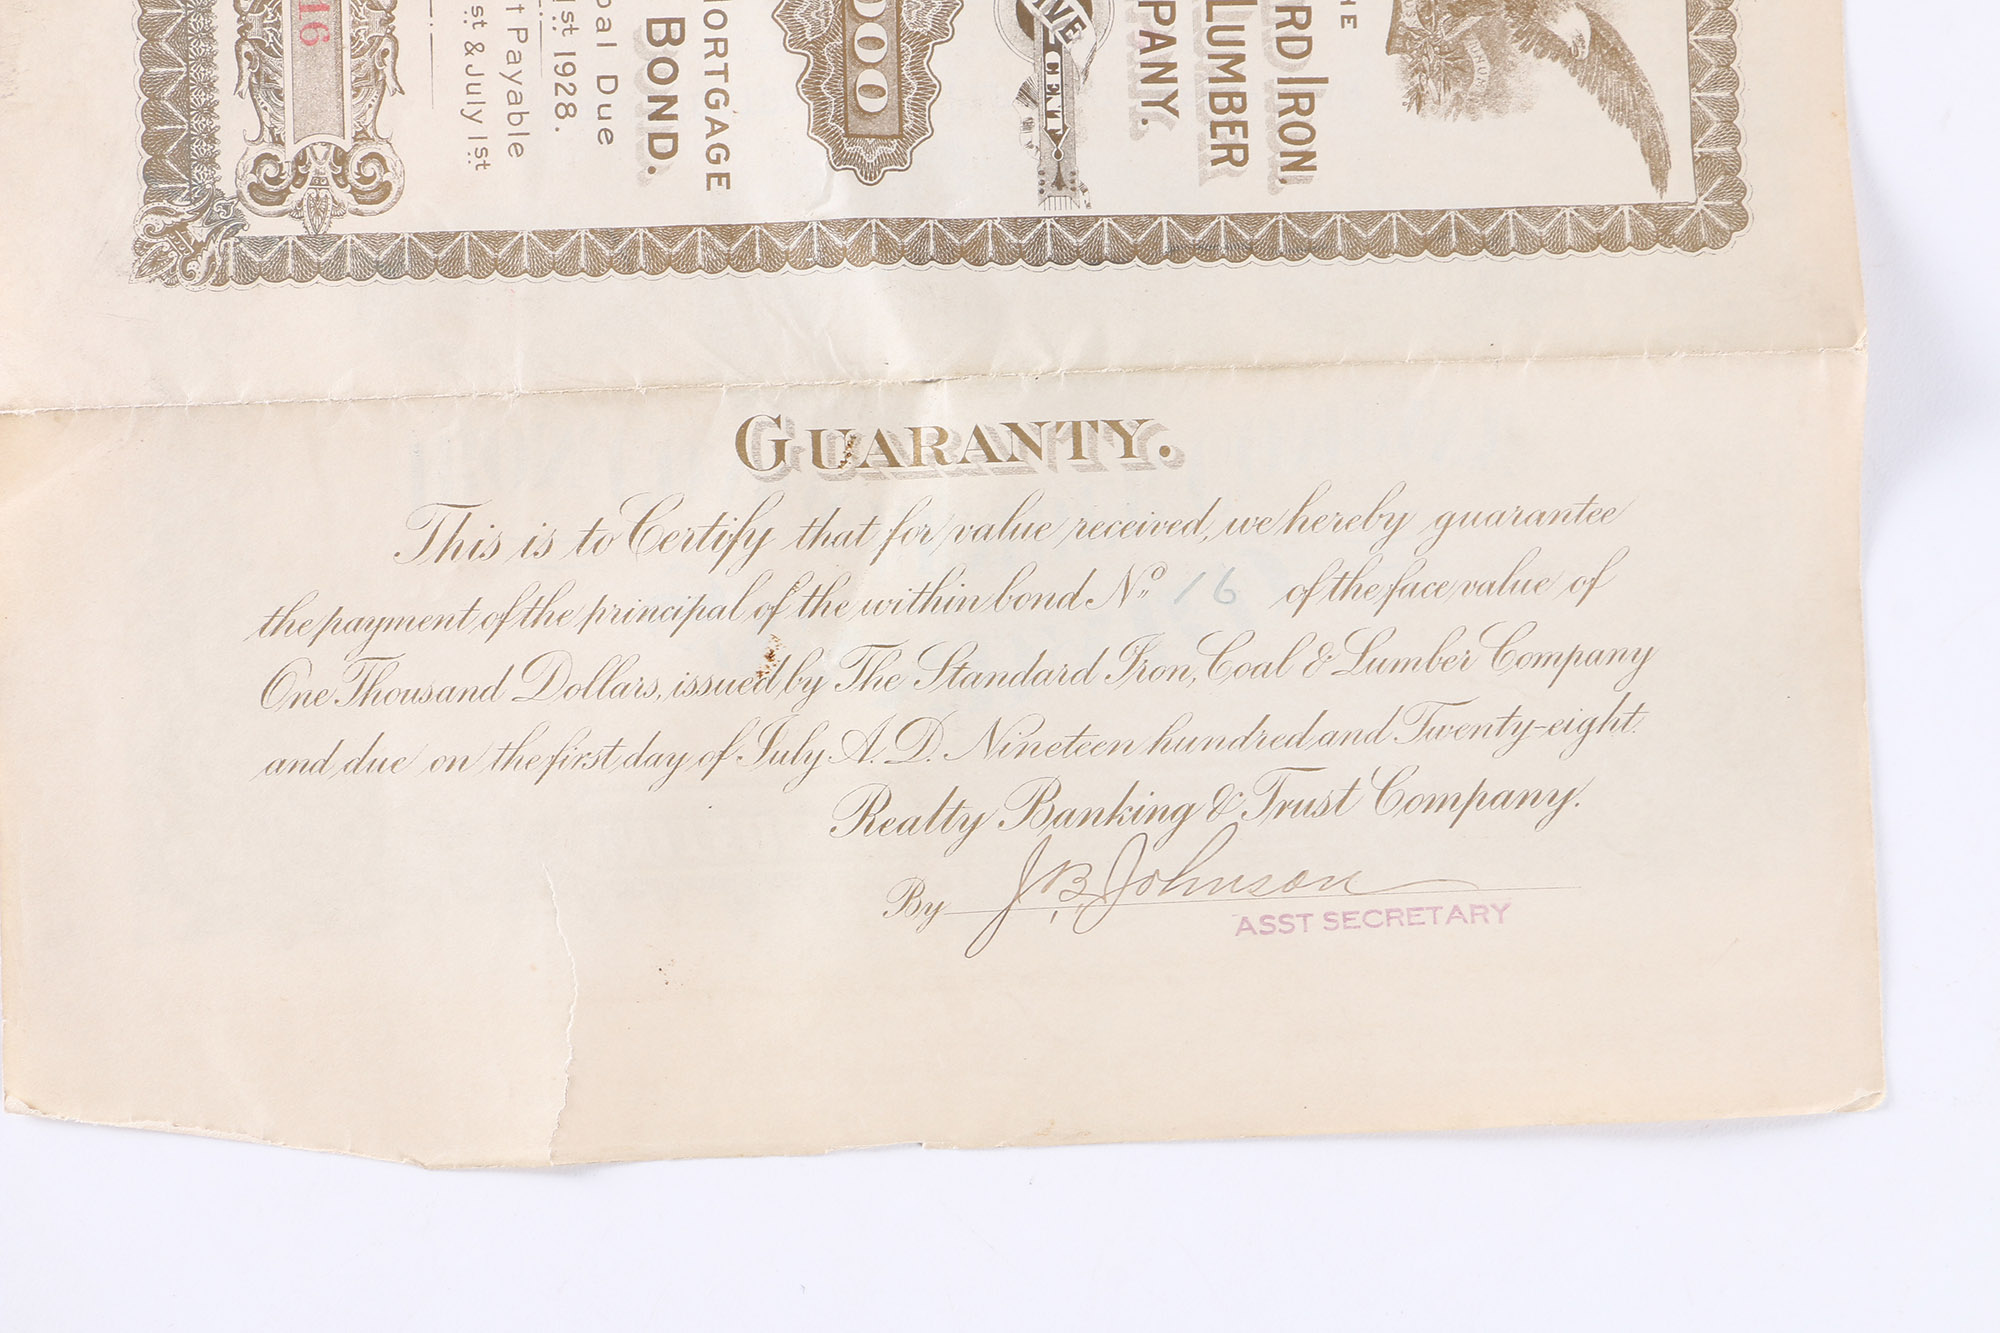 THE
RD IRON.
LUMBER
PANY.
NE
CENT
000
MORTGAGE
BOND.
pal Due
1st 1928.
t Payable
st & July 1st
16
GUARANTY.
This is to Certify that for value received, we hereby guarantee
the payment of the principal of the within bond No 16 of the face value of
One Thousand Dollars, issued by The Standard Iron, Coal & Lumber Company
and due on the first day of July A. D. Nineteen hundred and Twenty-eight.
Realty Banking & Trust Company.
By J. B. Johnson
ASST SECRETARY